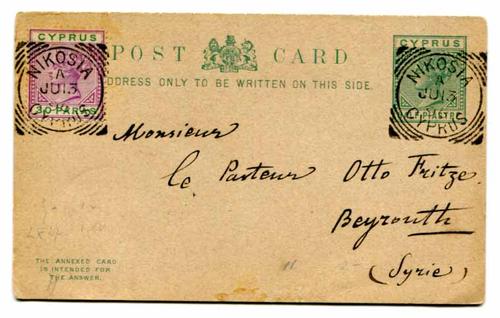 CYPRUS
30 PARAS
NIKOSIA
A
JU 13
CYPRUS
POST CARD
ADDRESS ONLY TO BE WRITTEN ON THIS SIDE.
CYPRUS
PIASTRE
NIKOSIA
A
JU 13
CYPRUS
Monsieur
le Pasteur Otto Fritze
Beyrouth
(Syrie)
THE ANNEXED CARD
IS INTENDED FOR
THE ANSWER.